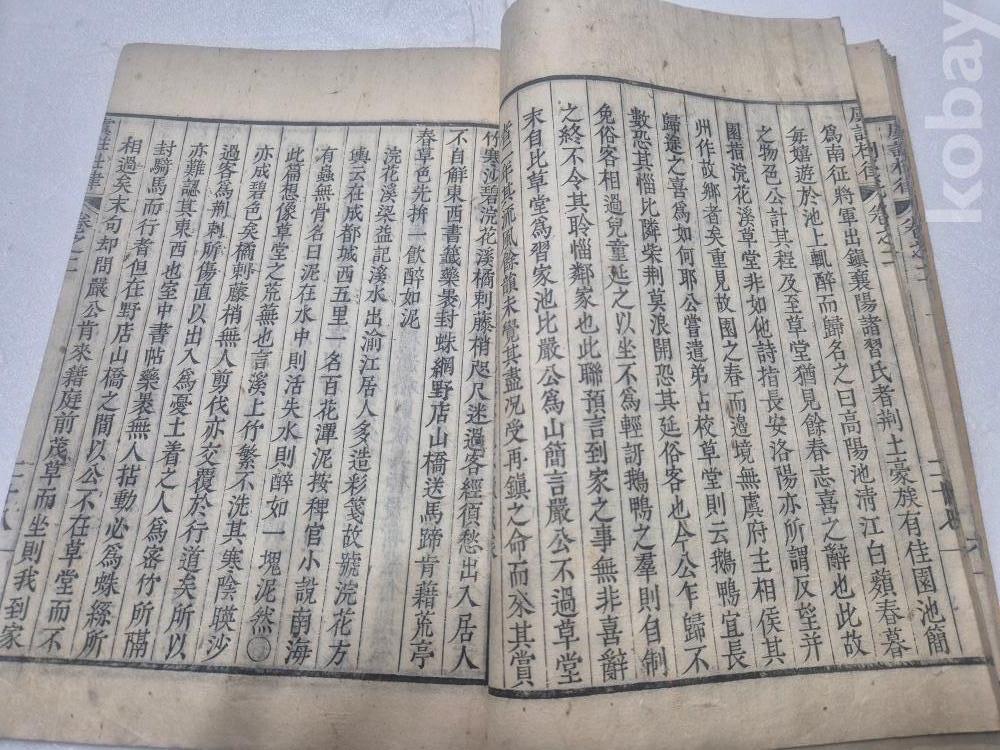 虞註杜律 卷之二
爲南征將軍出鎮襄陽諸習氏者荆土豪族有佳園池簡
每嬉遊於池上輒醉而歸名之曰高陽池清江白蘋春暮
之物色公計其程及至草堂猶見餘春志喜之辭也此故
園指浣花溪草堂非如他詩指長安洛陽亦所謂反望并
州作故鄉者矣重見故園之春而邊境無虞府主相俟其
歸途之喜爲如何耶公嘗遣弟占校草堂則云鵝鴨宜長
數恐其惱比隣柴荆莫浪開恐其延俗客也今公乍歸不
免俗客相過兒童延之以坐不爲輕訝鵝鴨之羣則自制
之終不令其聆惱鄰家也此聯預言到家之事無非喜辭
末自比草堂爲習家池比嚴公爲山簡言嚴公不過草堂
一年其流風餘韻未覺其盡况受再鎮之命而來其賞
竹寒沙碧浣花溪橘刺藤梢咫尺迷過客經須愁出入居人
不自解東西書籤藥裹封蛛網野店山橋送馬蹄肯藉荒亭
春草色先拚一飲醉如泥
浣花溪梁益記溪水出渝江居人多造彩箋故號浣花方
輿云在成都城西五里一名百花潭泥按稗官小說南海
有蟲無骨名曰泥在水中則活失水則醉如一塊泥然〇
此篇想像草堂之荒蕪也言溪上竹繁不洗其寒陰暎沙
亦成碧色矣橘刺藤梢無人剪伐亦交覆於行道矣所以
過客爲荆刺所傷直以出入爲憂土着之人爲密竹所礙
亦難認其東西也室中書帖藥裹無人拈動必爲蛛絲所
封騎馬而行者但在野店山橋之間以公不在草堂而不
相過矣末句却問嚴公肯來藉庭前茂草而坐則我到家
虞註杜律 卷之二
kobay